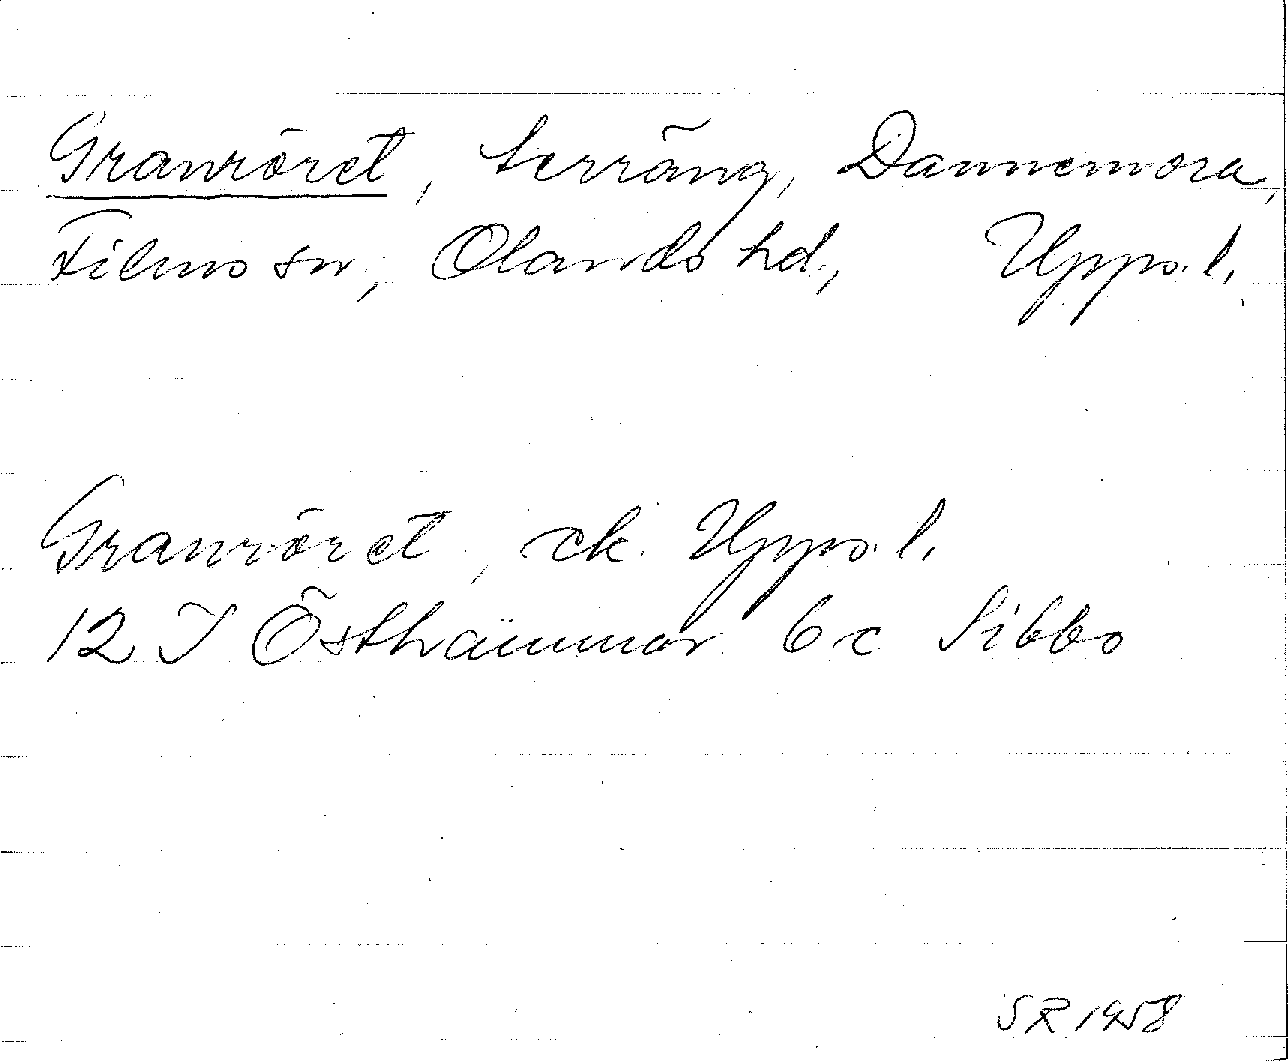 Granröret, terräng, Dannemora,
Films sn, Olands hd, Upps. l.
Granröret, ek. Upps. l.
12 I Östhammar 6 c Sibbo
SR 1958